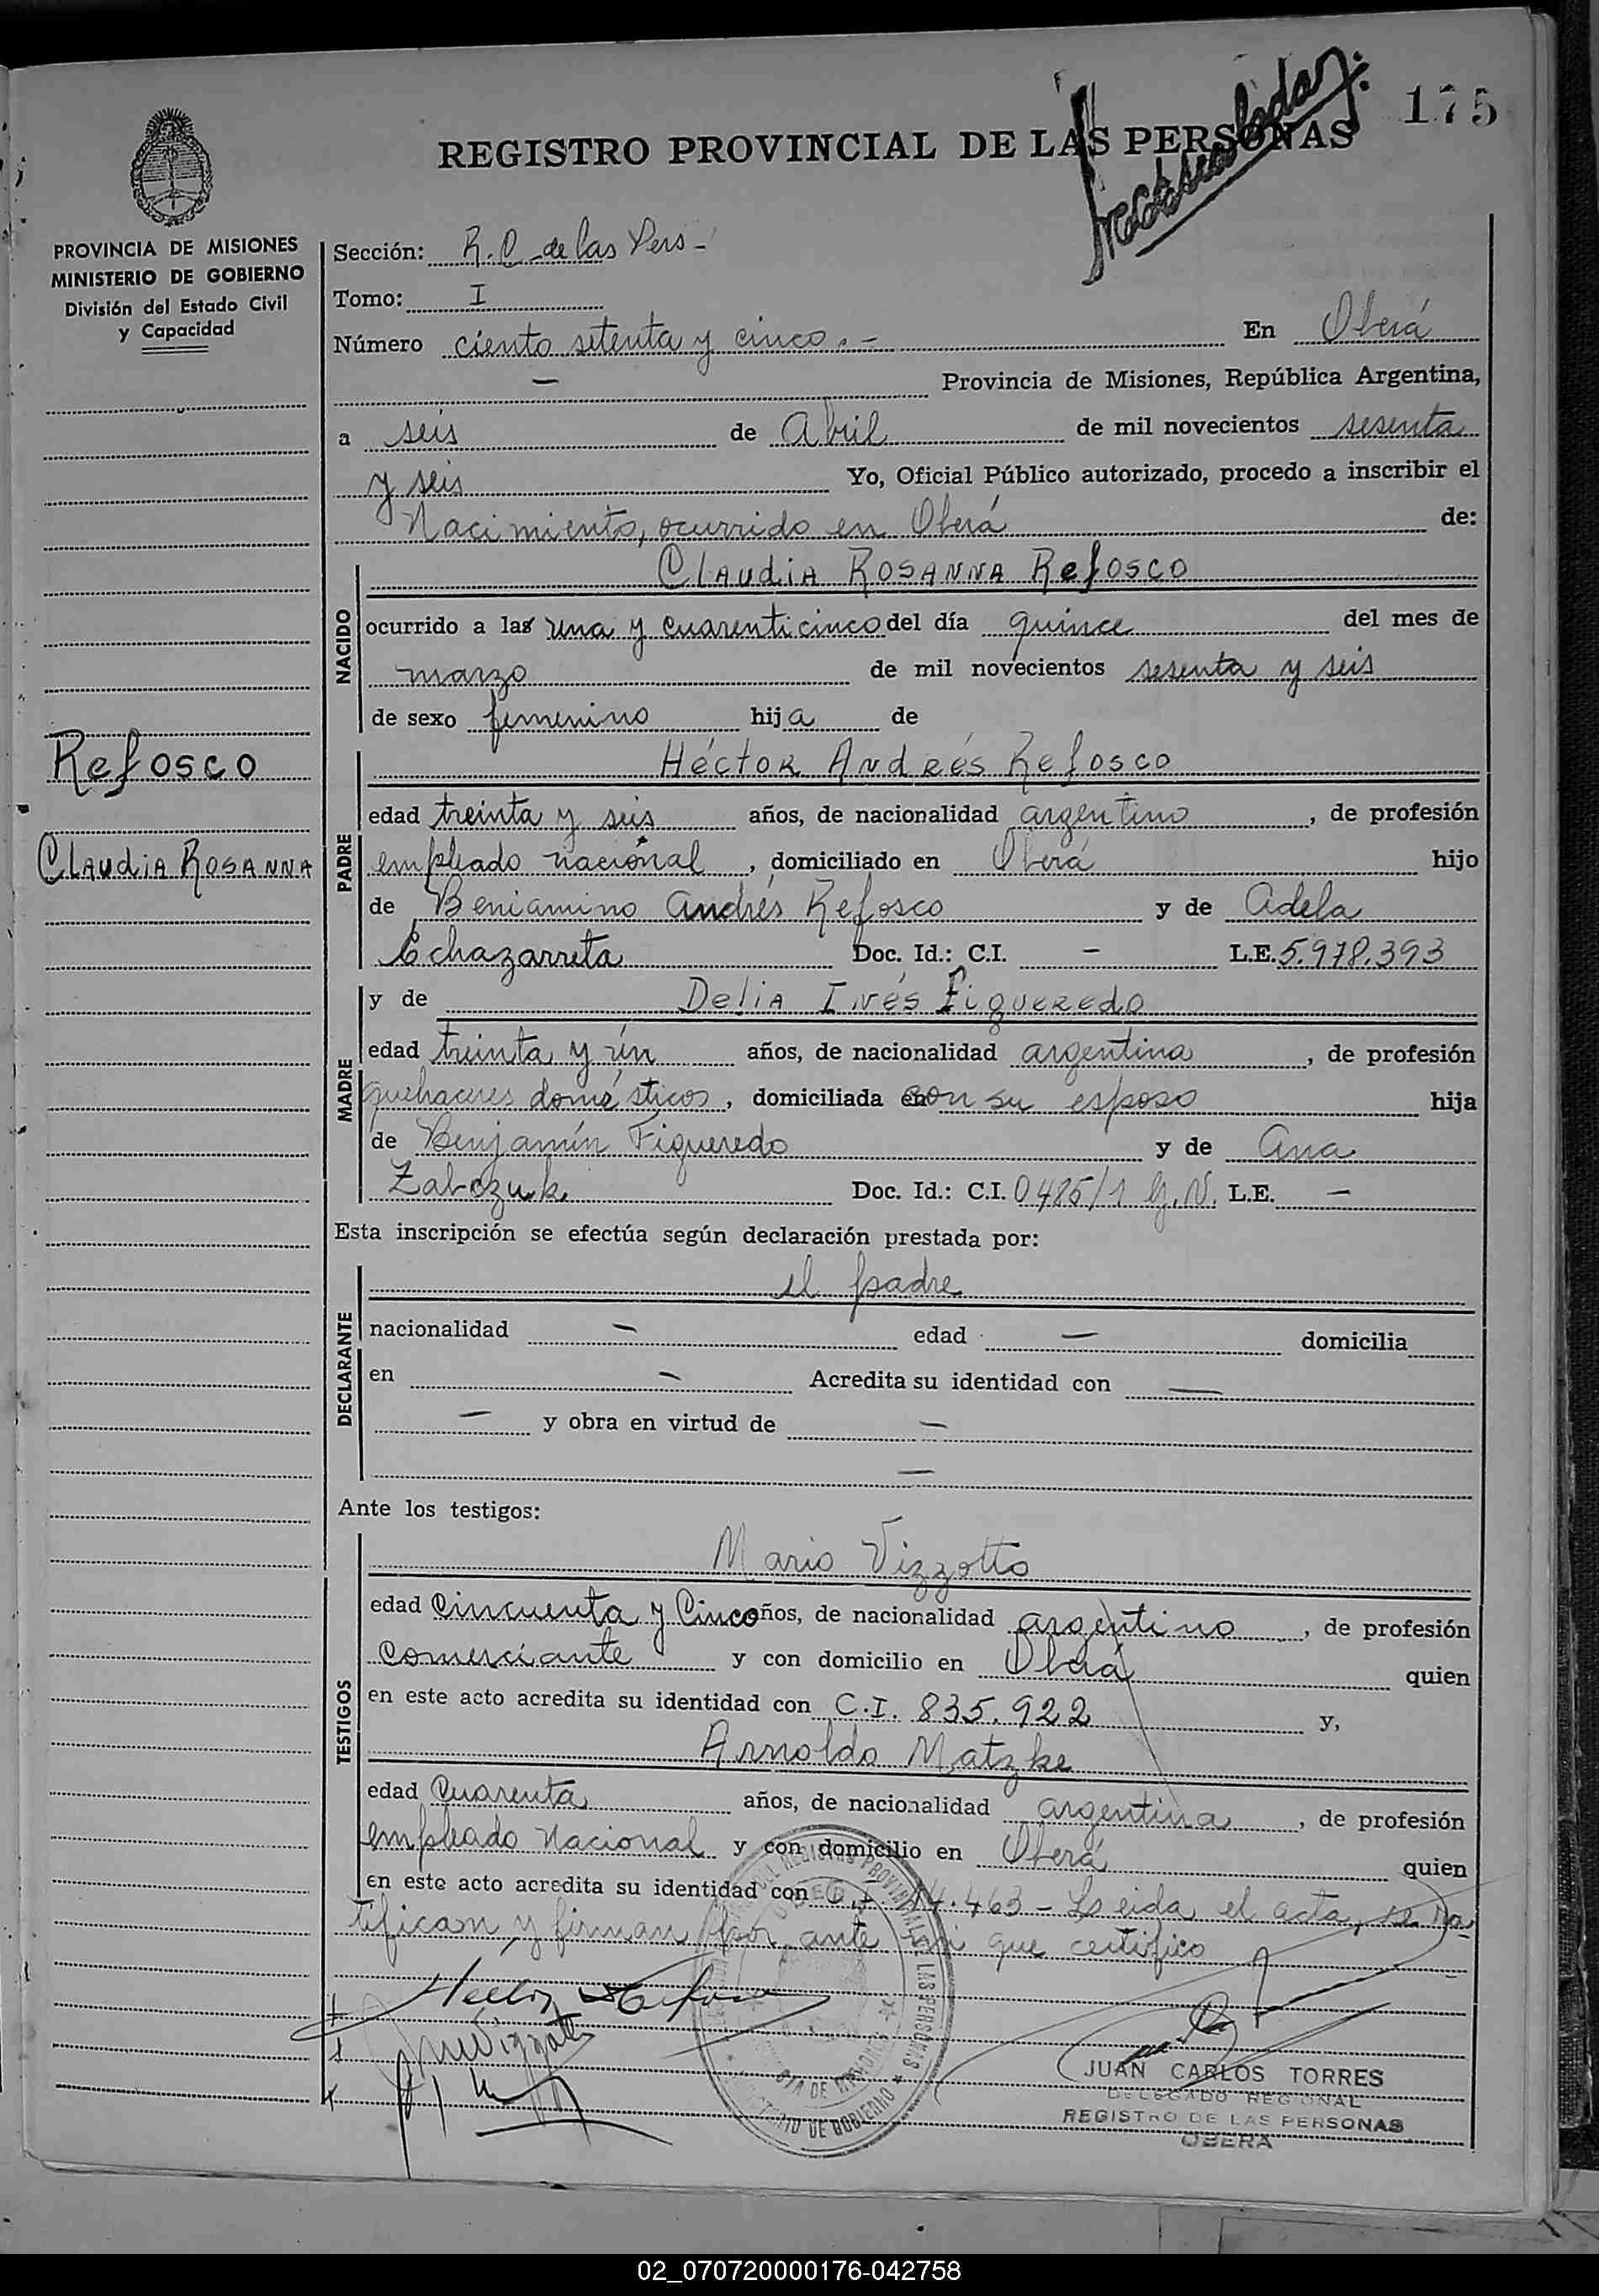 175
REGISTRO PROVINCIAL DE LAS PERSONAS
PROVINCIA DE MISIONES
MINISTERIO DE GOBIERNO
División del Estado Civil
y Capacidad
Sección: R. C. de las Pers -
Tomo: I
Número ciento setenta y cinco. - En Oberá
- Provincia de Misiones, República Argentina,
a seis de Abril de mil novecientos sesenta
y seis Yo, Oficial Público autorizado, procedo a inscribir el
Nacimiento, ocurrido en Oberá de:
NACIDO
Claudia Rosanna Refosco
ocurrido a las una y cuarenticinco del día quince del mes de
marzo de mil novecientos sesenta y seis
de sexo femenino hija de
Refosco
Claudia Rosanna
PADRE
Héctor Andrés Refosco
edad treinta y seis años, de nacionalidad argentino, de profesión
empleado nacional, domiciliado en Oberá hijo
de Beniamino Andrés Refosco y de Adela
Echazarreta Doc. Id.: C.I. - L.E. 5.978.393
MADRE
y de Delia Inés Figueredo
edad treinta y un años, de nacionalidad argentina, de profesión
quehaceres domésticos, domiciliada con su esposo hija
de Benjamín Figueredo y de Ana
Zabczuk Doc. Id.: C.I. 0485/1 G.N. L.E. -
Esta inscripción se efectúa según declaración prestada por:
DECLARANTE
el padre
nacionalidad - edad - domicilia
en - Acredita su identidad con -
- y obra en virtud de -
-
Ante los testigos:
TESTIGOS
Mario Vizzotto
edad Cincuenta y Cinco años, de nacionalidad argentino, de profesión
Comerciante y con domicilio en Oberá quien
en este acto acredita su identidad con C.I. 835.922 y,
Arnoldo Matzke
edad Cuarenta años, de nacionalidad argentina, de profesión
empleado Nacional y con domicilio en Oberá quien
en este acto acredita su identidad con C.I. 14.463 - Leida el acta, se ra-
tifican y firman por ante mi que certifico
JUAN CARLOS TORRES
DELEGADO REGIONAL
REGISTRO DE LAS PERSONAS
OBERA
02_070720000176-042758